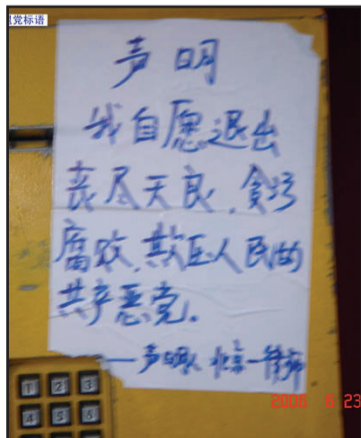 党标语
声明
我自愿退出
丧尽天良、贪污
腐败、欺压人民的
共产恶党。
——声明人 北京一律师
1 2 3
4 5 6
2006 6 23